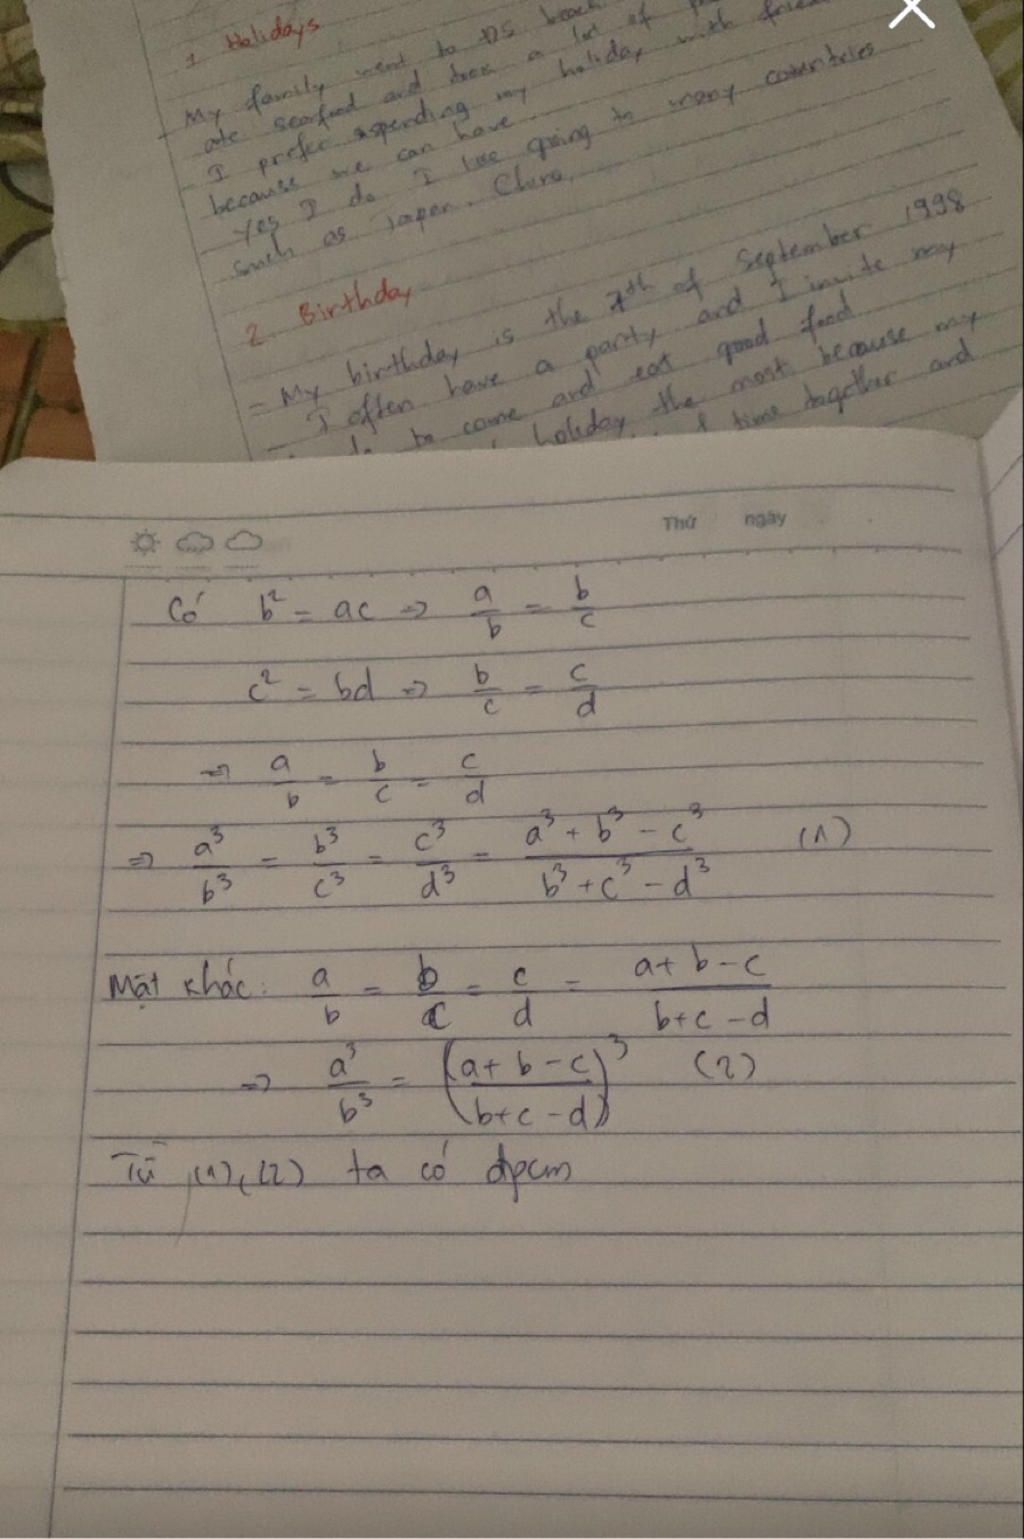 1 Holidays
My family went to DS beach
ate seafood and took a lot of
I prefer spending my holiday with
because we can have
Yes I do I like going to many countries
such as Japan, China,
2 Birthday
- My birthday is the 7th of September 1998
I often have a party and I invite my
to come and eat good food
holiday the most because my
time together and
Thứ ngày
Có b² = ac => a/b = b/c
c² = bd => b/c = c/d
=> a/b = b/c = c/d
=> a³/b³ = b³/c³ = c³/d³ = (a³ + b³ - c³)/(b³ + c³ - d³) (1)
Mặt khác: a/b = b/c = c/d = (a + b - c)/(b + c - d)
=> a³/b³ = ((a + b - c)/(b + c - d))³ (2)
Từ (1), (2) ta có đpcm